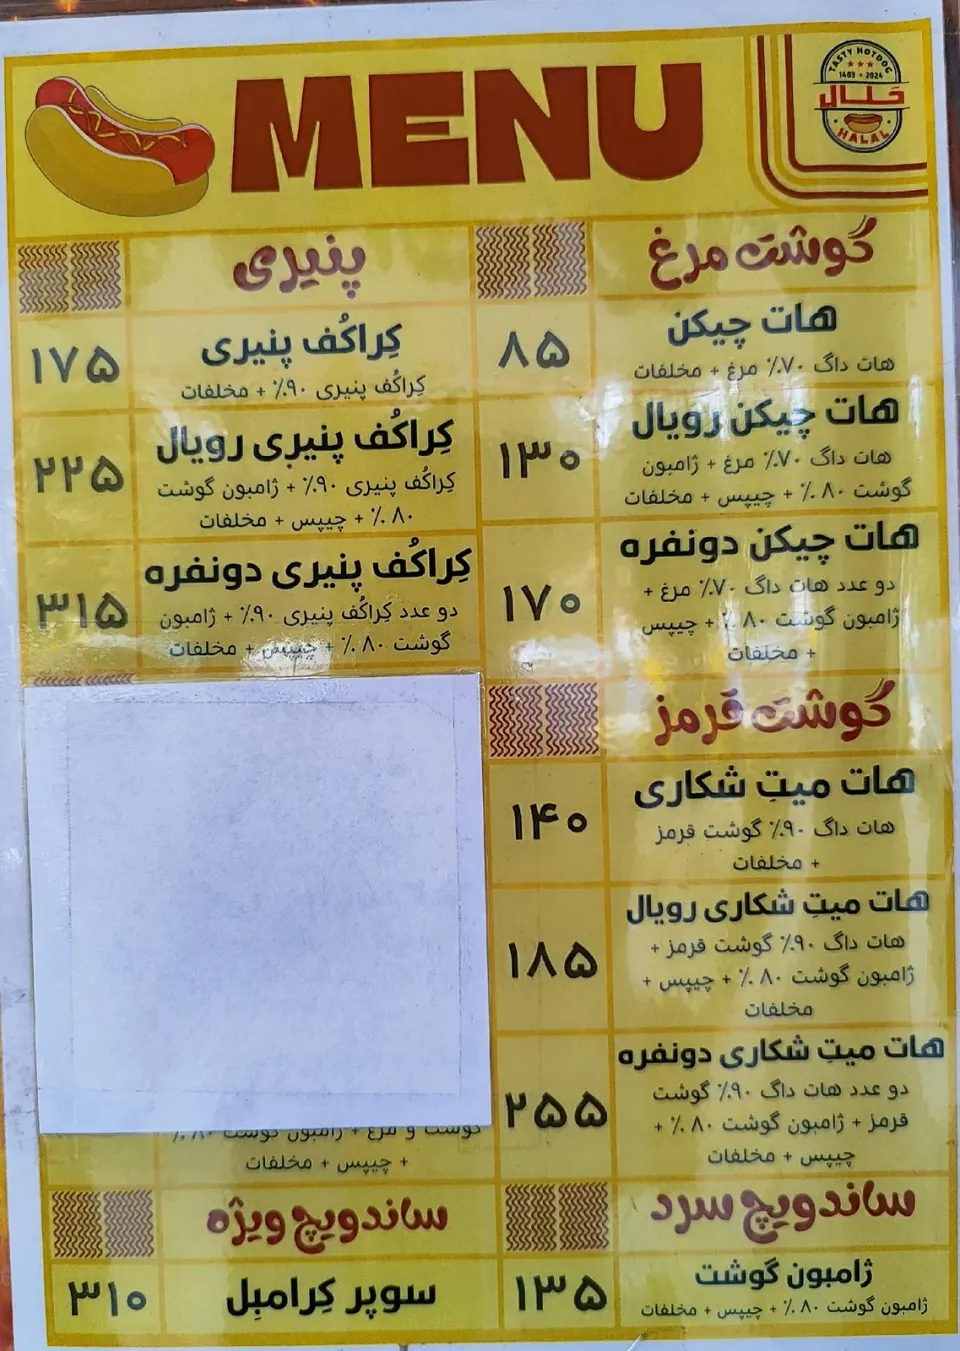 MENU
TASTY HOTDOG
1403 - 2024
حلال
HALAL
گوشت مرغ
هات چیکن
۸۵
هات داگ ۷۰٪ مرغ + مخلفات
هات چیکن رویال
۱۳۰
هات داگ ۷۰٪ مرغ + ژامبون
گوشت ۸۰٪ + چیپس + مخلفات
هات چیکن دونفره
۱۷۰
دو عدد هات داگ ۷۰٪ مرغ +
ژامبون گوشت ۸۰٪ + چیپس
+ مخلفات
گوشت قرمز
هات میتِ شکاری
۱۴۰
هات داگ ۹۰٪ گوشت قرمز
+ مخلفات
هات میتِ شکاری رویال
۱۸۵
هات داگ ۹۰٪ گوشت قرمز +
ژامبون گوشت ۸۰٪ + چیپس +
مخلفات
هات میتِ شکاری دونفره
۲۵۵
دو عدد هات داگ ۹۰٪ گوشت
قرمز + ژامبون گوشت ۸۰٪ +
چیپس + مخلفات
ساندویچ سرد
ژامبون گوشت
۱۳۵
ژامبون گوشت ۸۰٪ + چیپس + مخلفات
پنیری
کِراکُف پنیری
۱۷۵
کِراکُف پنیری ۹۰٪ + مخلفات
کِراکُف پنیری رویال
۲۲۵
کِراکُف پنیری ۹۰٪ + ژامبون گوشت
۸۰٪ + چیپس + مخلفات
کِراکُف پنیری دونفره
۳۱۵
دو عدد کِراکُف پنیری ۹۰٪ + ژامبون
گوشت ۸۰٪ + چیپس + مخلفات
گوشت و مرغ + ژامبون گوشت ۸۰٪
+ چیپس + مخلفات
ساندویچ ویژه
سوپر کِرامبِل
۳۱۰